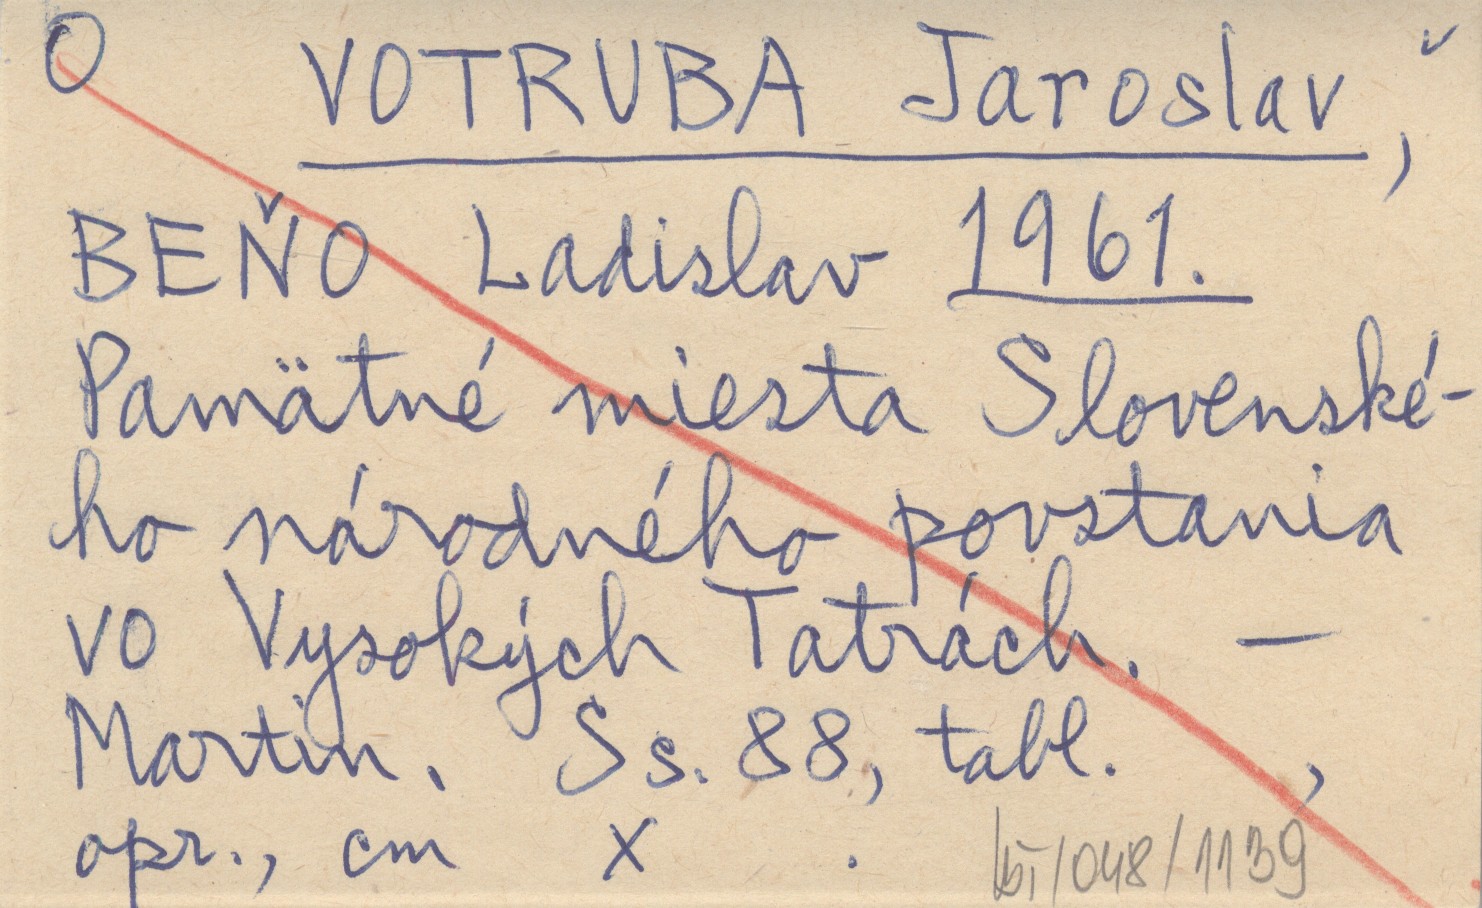 O VOTRUBA Jaroslav,
BEŇO Ladislav 1961.
Pamätné miesta Slovenské-
ho národného povstania
vo Vysokých Tatrách. —
Martin. Ss. 88, tabl. ,
opr., cm X .
/048/1139